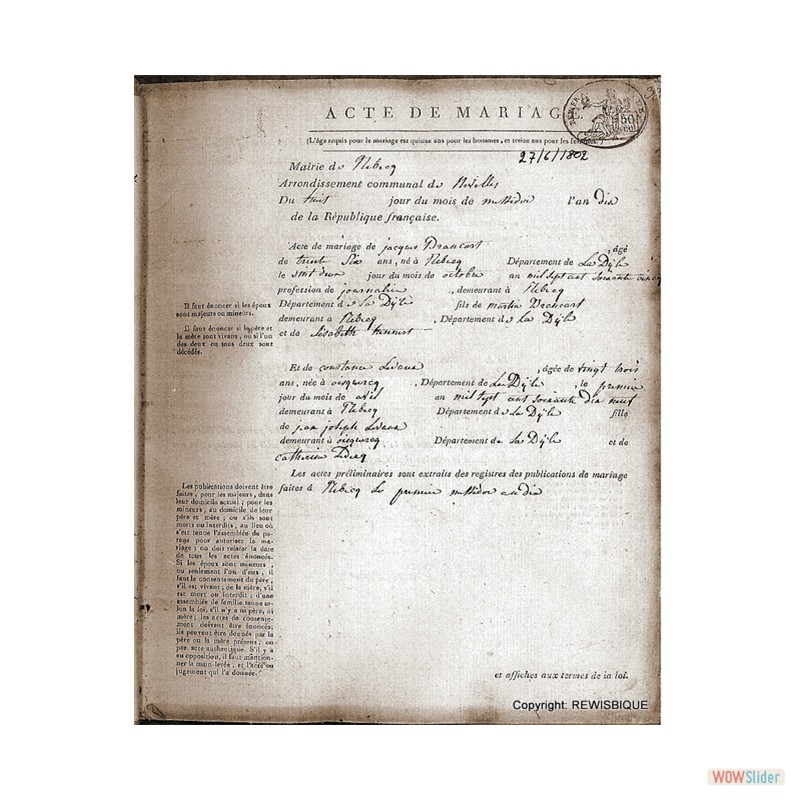 ACTE DE MARIAGE.
50
(L'âge requis pour le mariage est quinze ans pour les hommes, et treize ans pour les femmes.)
27/6/1802
Mairie de Rebecq
Arrondissement communal de Nivelles
Du huit jour du mois de messidor l'an dix
de la République française.
Acte de mariage de jacques Brancart , âgé
de trente six ans, né à Rebecq Département de La Dÿle
le jour du mois de octobre an mil sept cent soixante cinq
profession de journalier , demeurant à Rebecq
Département de La Dÿle fils de martin Brancart
demeurant à Rebecq , Département de La Dÿle
et de Elisabeth
Il faut énoncer si les époux
sont majeurs ou mineurs.
Il faut énoncer si le père et
la mère sont vivans, ou si l'un
des deux ou tous deux sont
décédés.
Et de constance , âgée de vingt trois
ans, née à oisquercq , Département de La Dÿle , le premier
jour du mois de avril an mil sept cent soixante dix neuf
demeurant à Rebecq Département de La Dÿle fille
de jean joseph
demeurant à oisquercq Département de La Dÿle et de
catherine
Les actes préliminaires sont extraits des registres des publications de mariage
faites à Rebecq Le premier messidor an dix
Les publications doivent être
faites, pour les majeurs, dans
leur domicile actuel ; pour les
mineurs, au domicile de leur
père et mère ; ou s'ils sont
morts ou interdits, au lieu où
s'est tenue l'assemblée de pa-
rens pour autoriser le ma-
riage : on doit relater la date
de tous les actes énoncés.
Si les époux sont mineurs,
ou seulement l'un d'eux, il
faut le consentement du père,
s'il est vivant; de la mère, s'il
est mort ou interdit ; d'une
assemblée de famille tenue se-
lon la loi, s'il n'y a ni père, ni
mère; les actes de consente-
ment doivent être énoncés;
ils peuvent être donnés par le
père ou la mère présens, ou
par acte authentique. S'il y a
eu opposition, il faut mention-
ner la main-levée, et l'acte ou
jugement qui l'a donnée.
et affiches aux termes de la loi.
Copyright: REWISBIQUE
WOWSlider